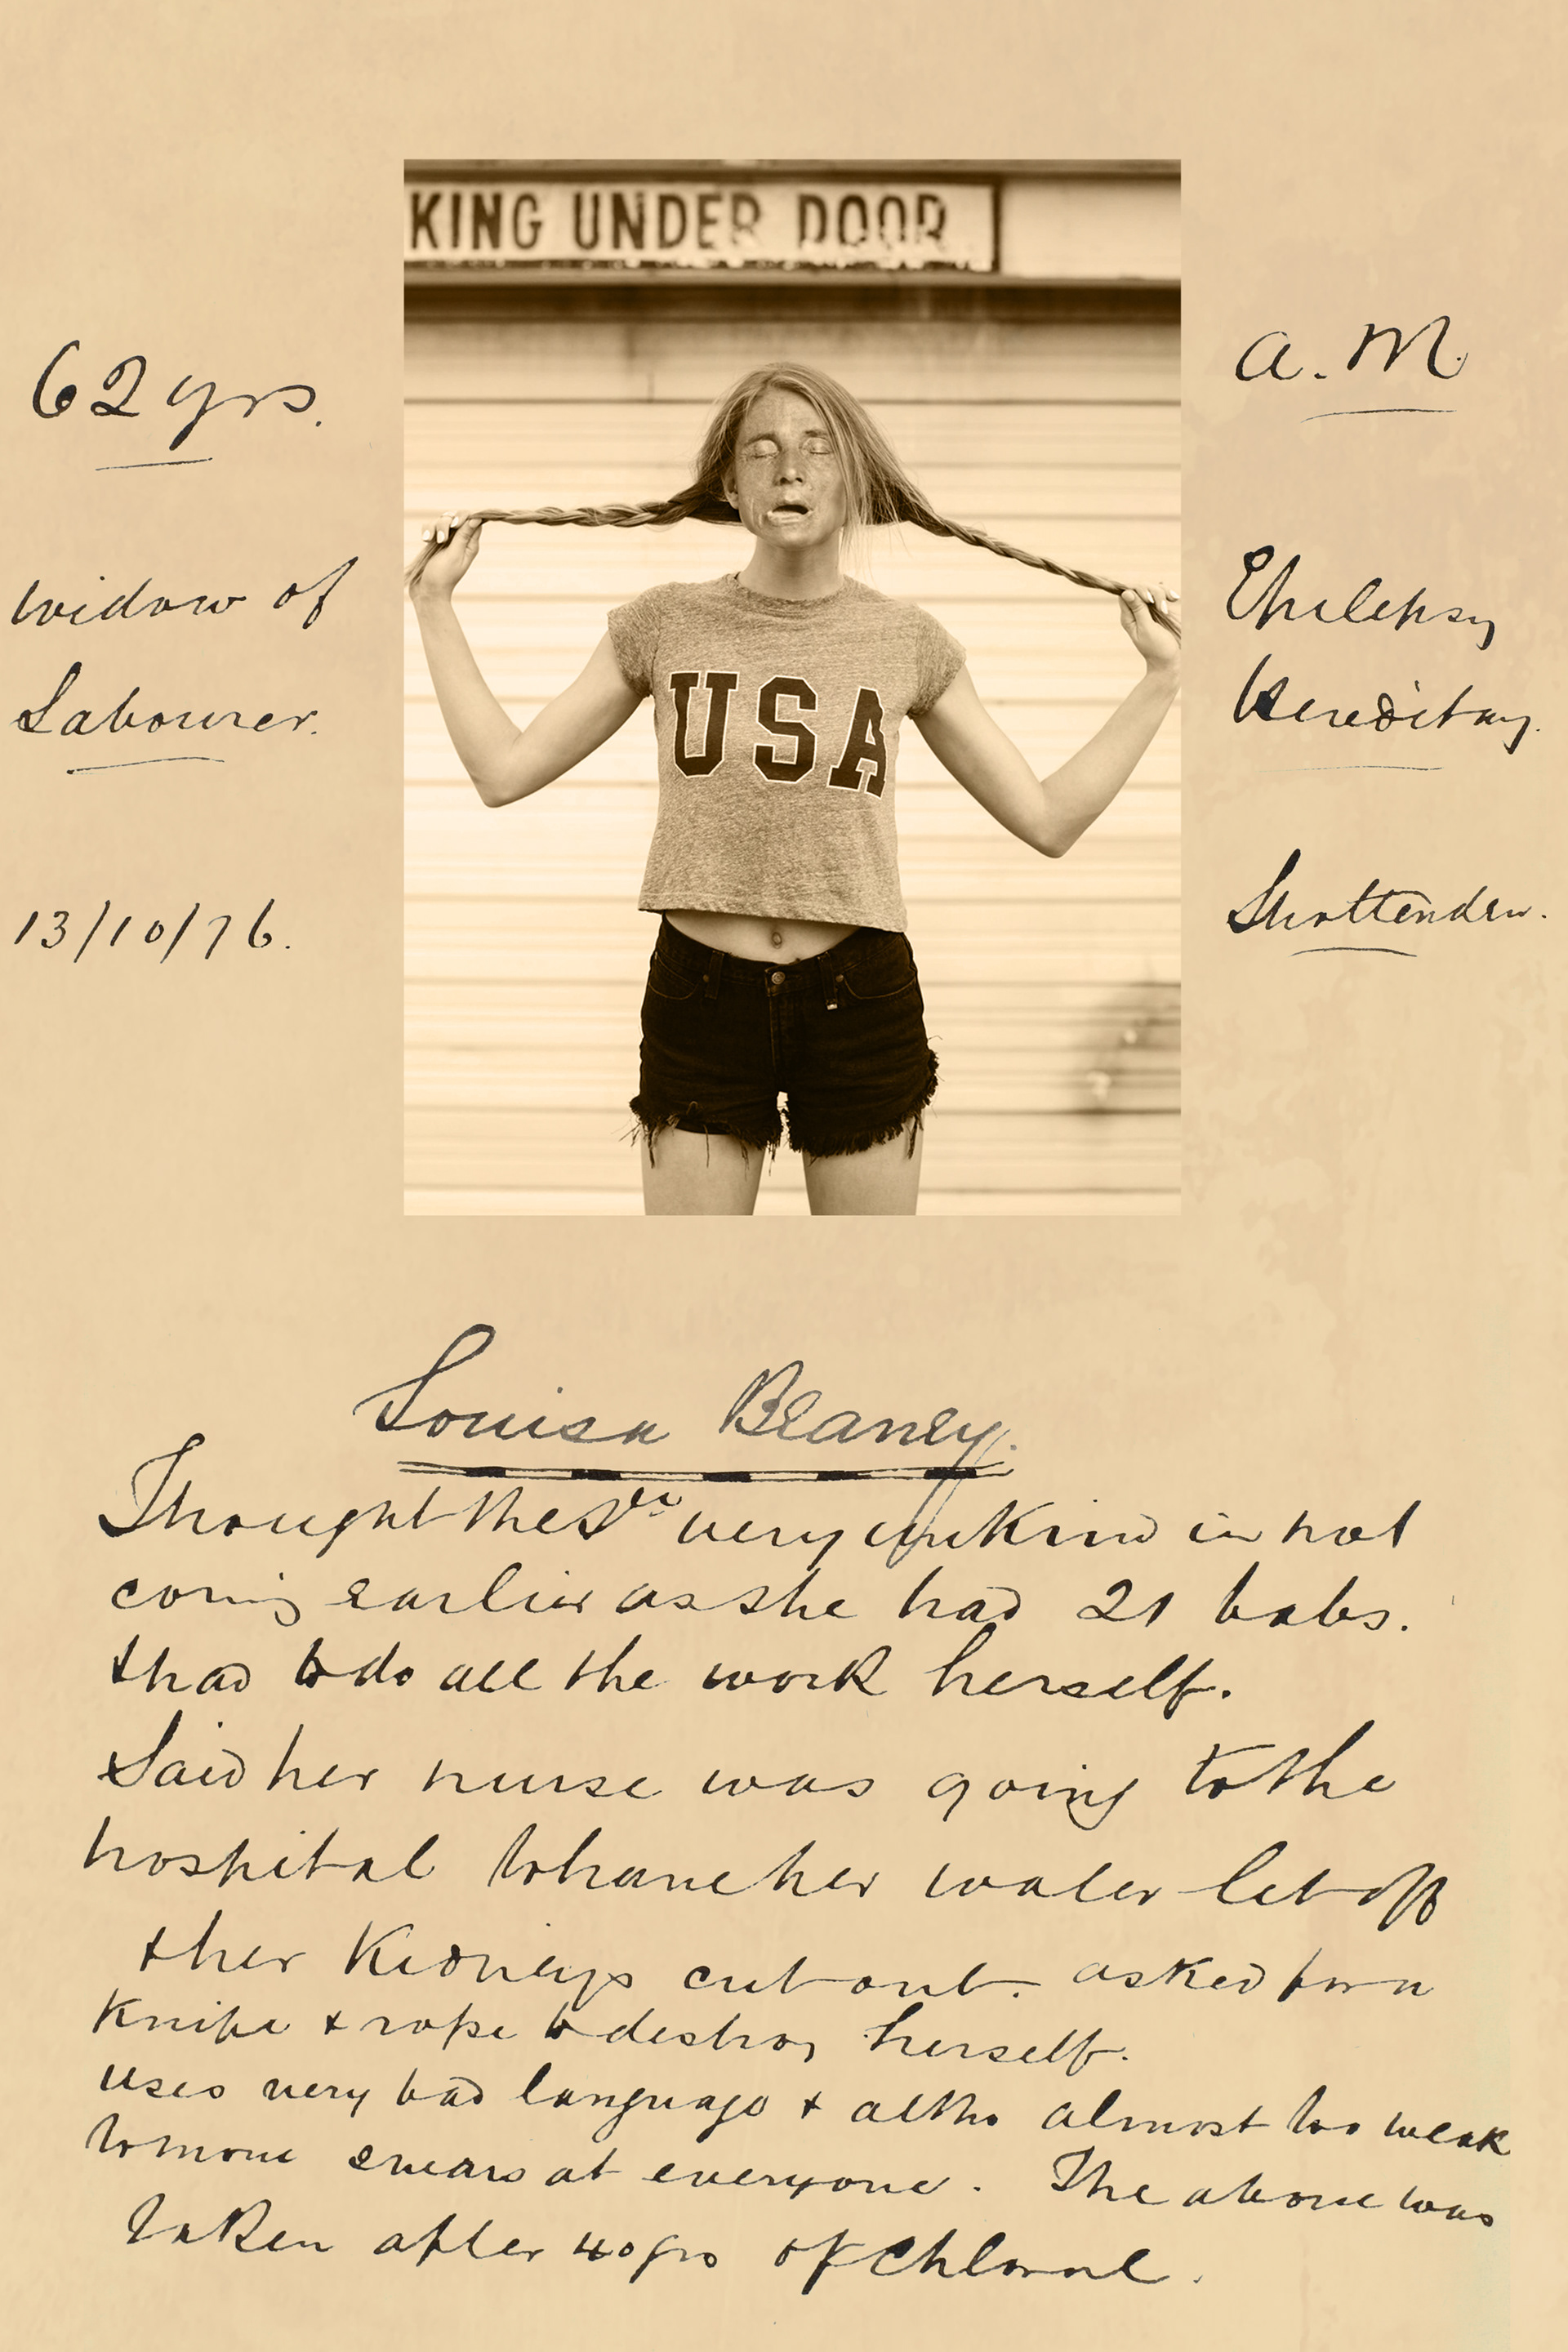 KING UNDER DOOR
62 yrs.
Widow of
Labourer.
13/10/76.
USA
a.M.
Epilepsy
Hereditary.
Shottenden.
Louisa Blaney.
Thought the Dr very unkind in not
coming earlier as she had 21 babs.
& had to do all the work herself.
Said her nurse was going to the
hospital to have her water let off
& her Kidneys cut out. asked for a
Knife & rope to destroy herself.
Uses very bad language & altho almost too weak
to move swears at everyone. The above was
taken after 40 grs of Chloral.